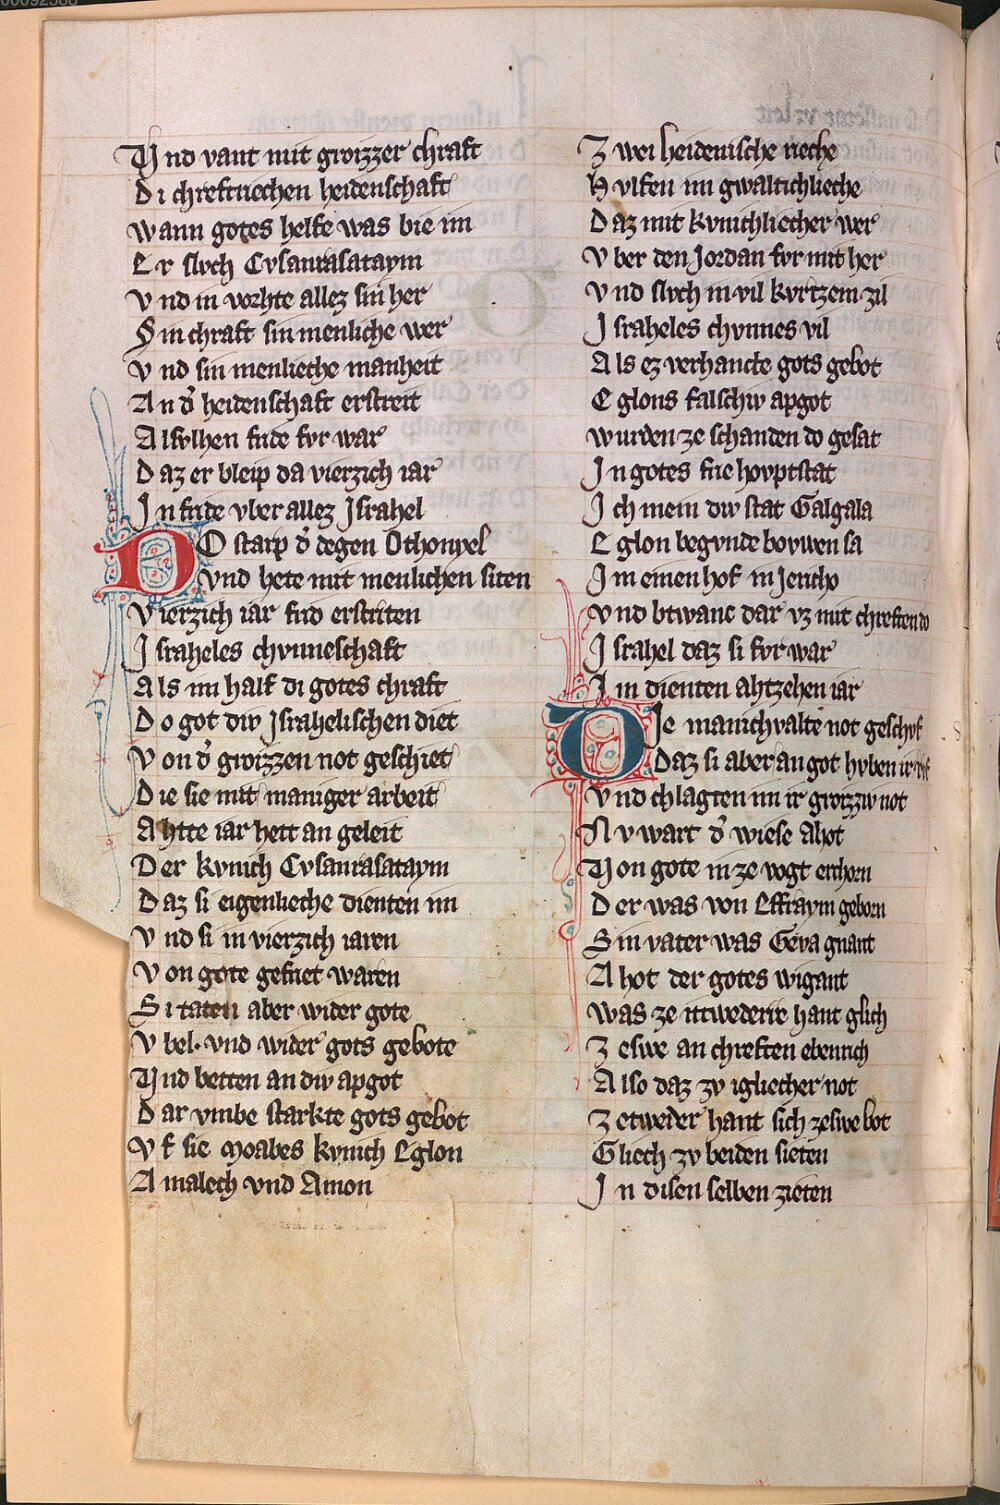 Vnd vant mit groizzer chraft
Di chreftriechen heidenschaft
wann gotes helfe was bie im
Er slvch Cvsanrasataym
Vnd in vorhte allez sin her
Sin chraft sin menliche wer
Vnd sin menlieche manheit
An d̉ heidenschaft erstreit
Alsylhen fride fvr war
Daz er bleip da vierzich iar
In fride vber allez Israhel
DO starp d̉ degen Othonyel
vnd hete mit menlichen siten
Vierzich iar frid erstriten
Israheles chvnneschaft
Als im half di gotes chraft
Do got div Israhelischen diet
Von d̉ groizzen not geschiet
Die sie mit maniger arbeit
Ahtte iar hett an geleit
Der kvnich Cvsanrasataym
Daz si eigenlieche dienten im
Vnd si in vierzich iaren
Von gote gefriet waren
Si taten aber wider gote
Vbel. vnd wider gots gebote
Vnd betten an div apgot
Dar vmbe starkte gots gebot
Vf sie Moabes kvnich Eglon
Amalech vnd Amon
Zwei heidenische rieche
Hvlfen im gwaltichlieche
Daz mit kvnichliecher wer
Vber den Jordan fvr mit her
Vnd slvch in vil kvrtzem zil
Israheles chvnnes vil
Als ez verhancte gots gebot
Eglons falschiv apgot
wurden ze schanden do gesat
In gotes frie hovptstat
Ich mein div stat Galgala
Eglon begvnde bovwen sa
Im einen hof in Jericho
Vnd btwanc dar vz mit chreften do
Israhel daz si fvr war
Im dienten ahtzehen iar
DIe manichvalte not geschvf
Daz si aber an got hvben ir rvf
Vnd chlagten im ir groizziv not
Nv wart d̉ wiese Ahot
Von gote in ze vogt erchorn
Der was von Effraym geborn
Sin vater was Geva gnant
Ahot der gotes wigant
Was ze itwederre hant glich
Zeswe an chreften ebenrich
Also daz zv igliecher not
Zetweder hant sich zeswe bot
Gliech zv beiden sieten
In disen selben zieten